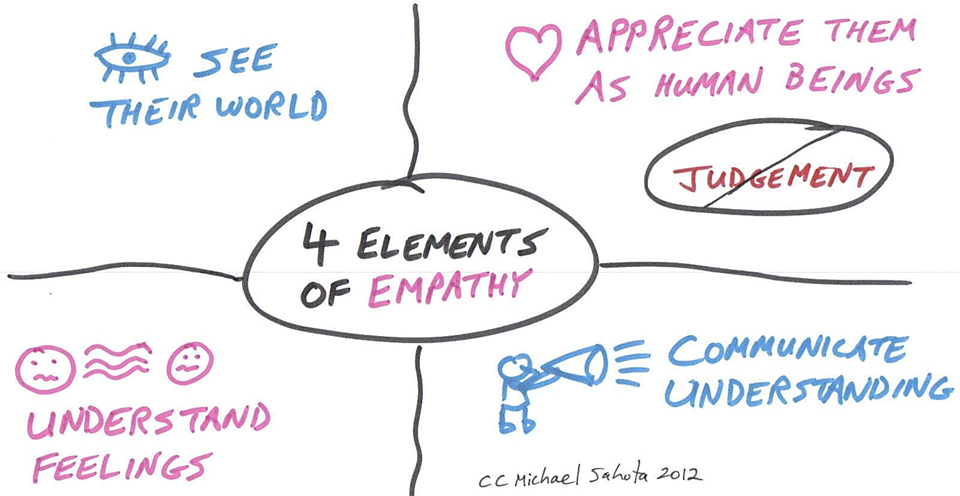 SEE
THEIR WORLD
APPRECIATE THEM
AS HUMAN BEINGS
JUDGEMENT
4 ELEMENTS
OF EMPATHY
UNDERSTAND
FEELINGS
COMMUNICATE
UNDERSTANDING
CC Michael Sahota 2012